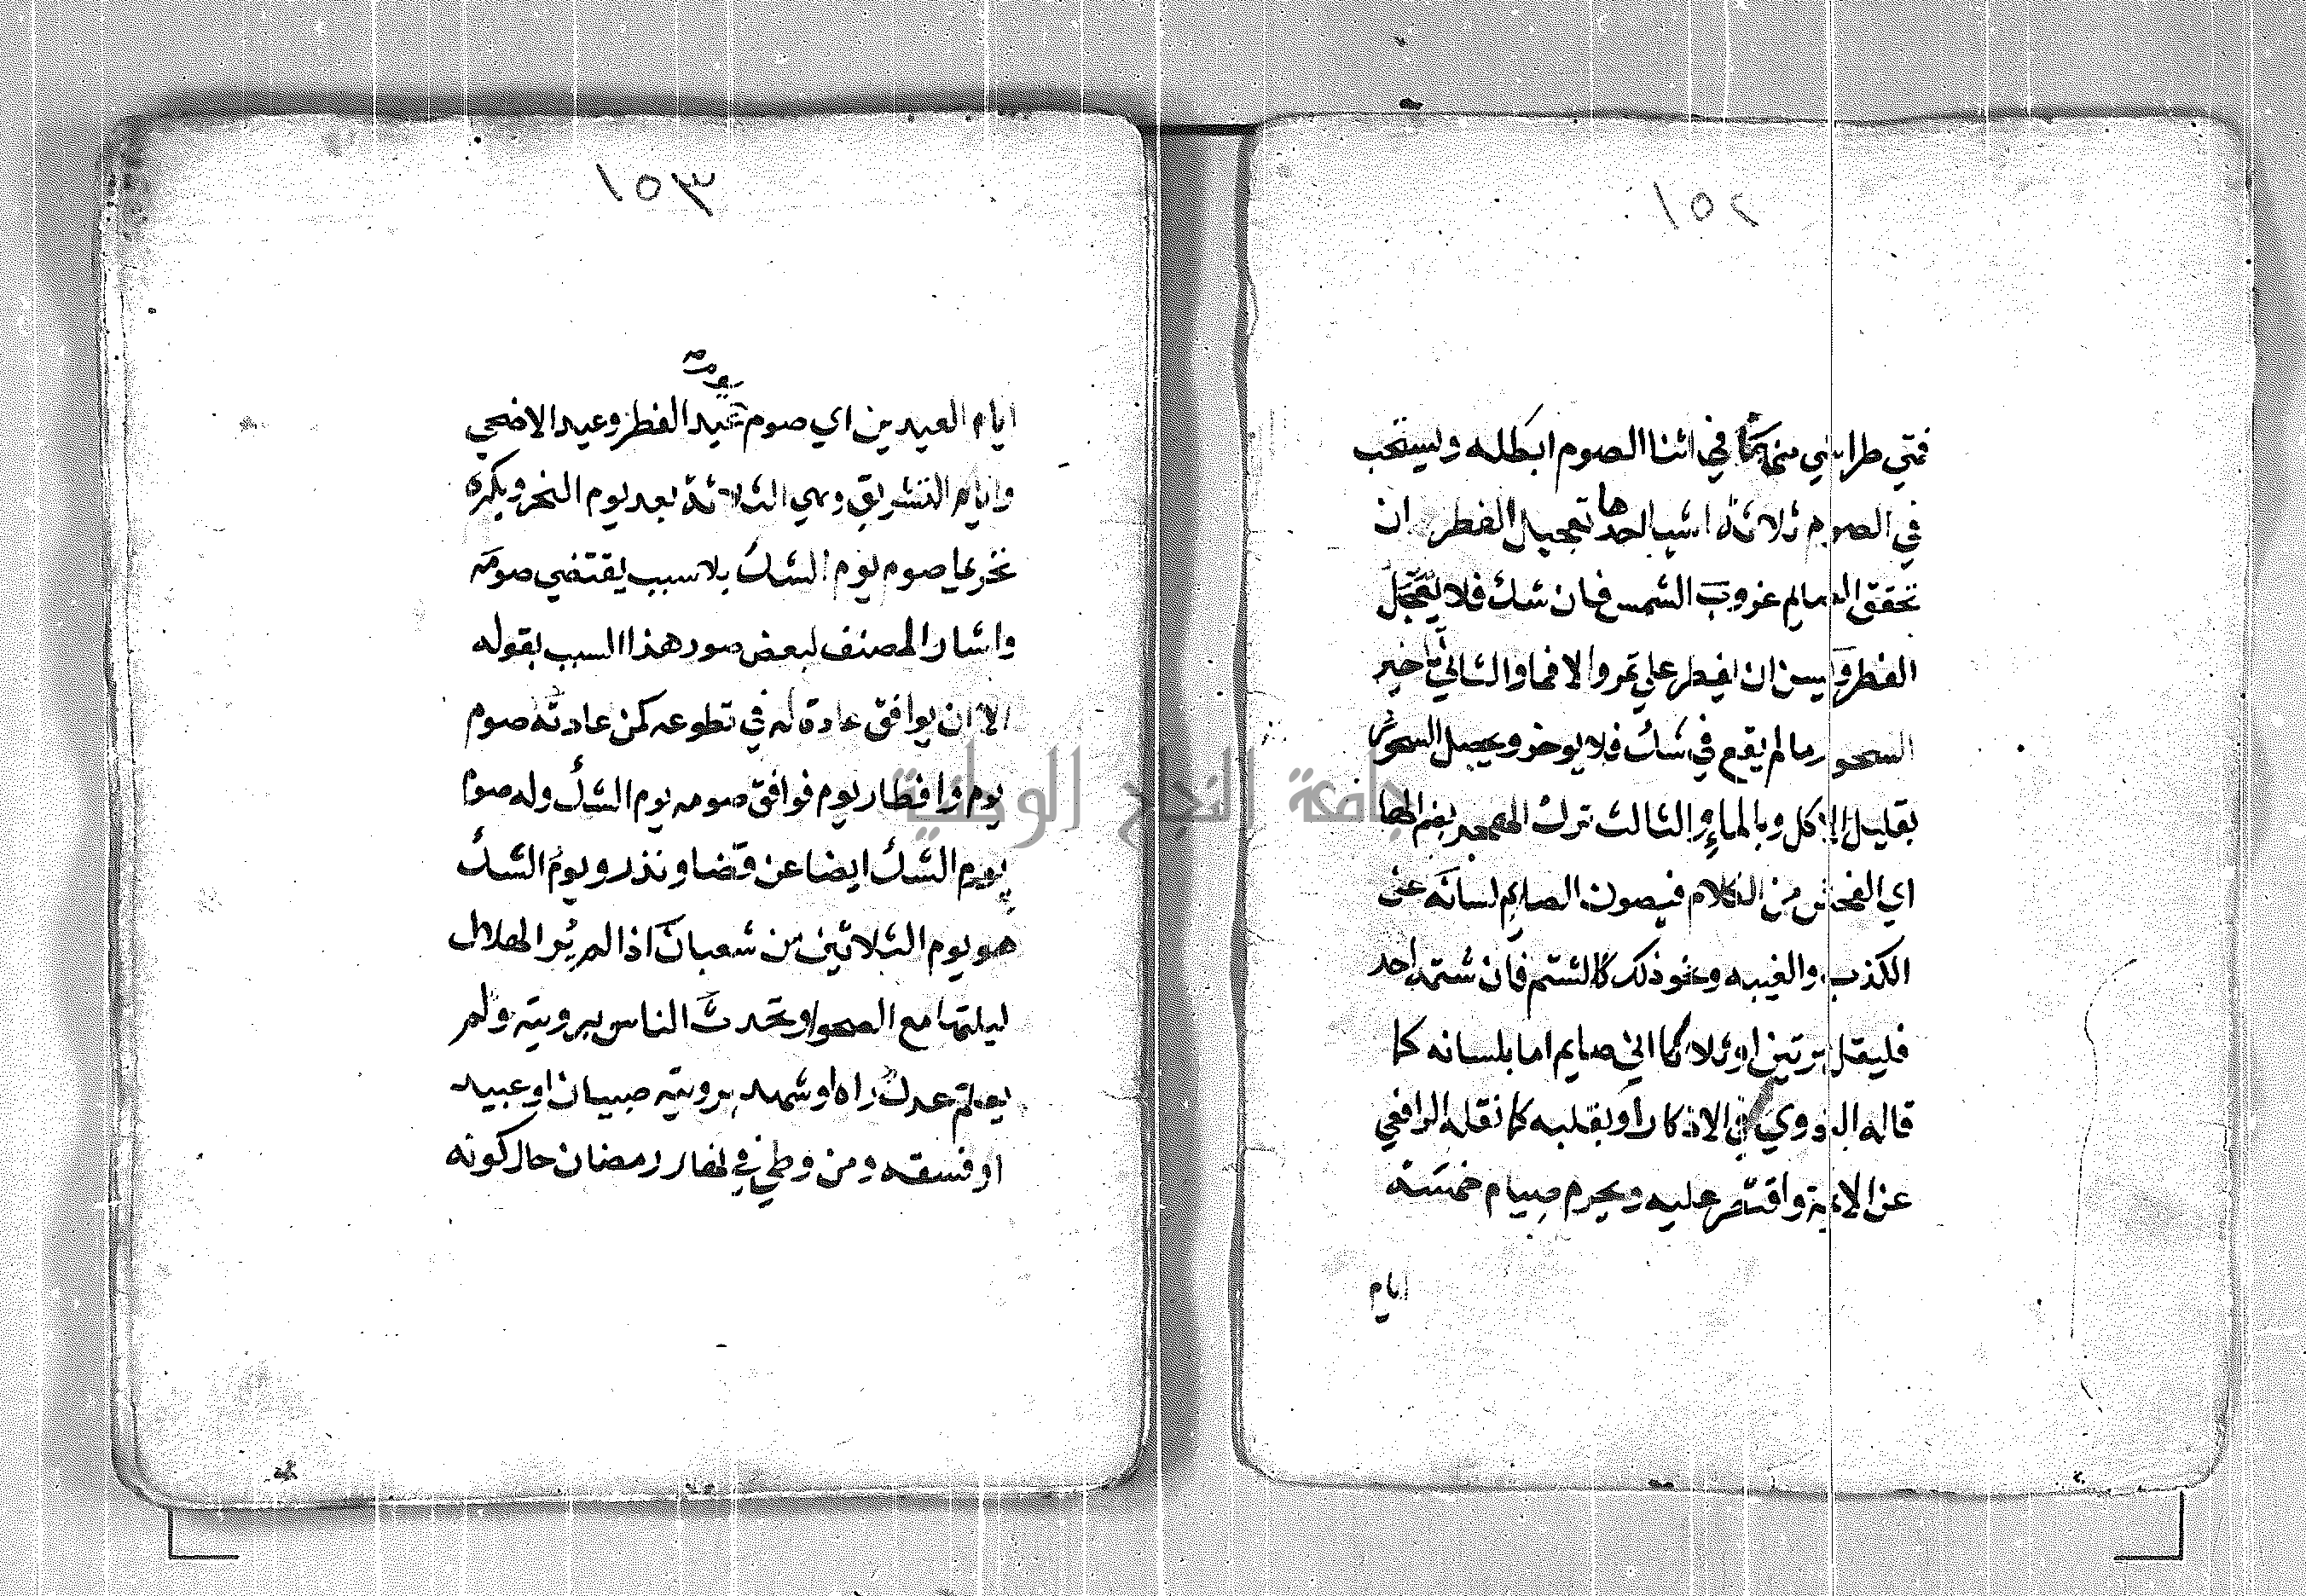 ١٥٢
فمتي طرا شي منها في اثنا الصوم ابطله ويستحب
في الصوم ثلاثة اشيا احدها تعجيل الفطر ان
تحقق الصايم غروب الشمس فان شك فلا يعجل
الفطر ويسن ان يفطر علي تمر والا فما والثاني تاخير
السحور ما لم يقع في شك فلا يوخر ويحصل السحور
بقليل الاكل وبالماء والثالث ترك الهجر بضم الها
اي الفحش من الكلام فيصون الصايم لسانه عن
الكذب والغيبه ونحو ذلك كالشتم فان شتمه احد
فليقل مرتين او ثلاثا اني صايم اما بلسانه كما
قاله النووي في الاذكار او بقلبه كما نقله الرافعي
عن الايمة واقتصر عليه ويحرم صيام خمسة
ايام
١٥٣
يومي
ايام العيدين اي صوم عيد الفطر وعيد الاضحي
وايام التشريق وهي الثلاثة بعد يوم النحر ويكره
تحريما صوم يوم الشك بلا سبب يقتضي صومه
واشار المصنف لبعض صور هذا السبب بقوله
الا ان يوافق عادة له في تطوعه كمن عادته صوم
يوم وافطار يوم فوافق صومه يوم الشك وله صوم
يوم الشك ايضا عن قضا ونذر ويوم الشك
هو يوم الثلاثين من شعبان اذا لم يُر الهلال
ليلتها مع الصحو او تحدث الناس برويته ولم
يعلم عدل راه او شهد برويته صبيان او عبيد
او فسقه ومن وطي في نهار رمضان حال كونه
جامعة النجاح الوطنية